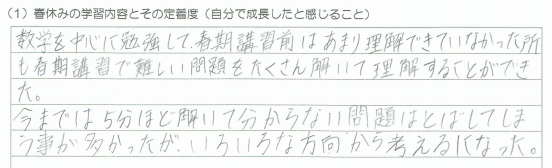 (1) 春休みの学習内容とその定着度（自分で成長したと感じること）
数学を中心に勉強して、春期講習前はあまり理解できていなかった所
も春期講習で難しい問題をたくさん解いて理解することができ
た。
今までは5分ほど解いて分からない問題はとばしてしま
う事が多かったが、いろいろな方向から考えるになった。